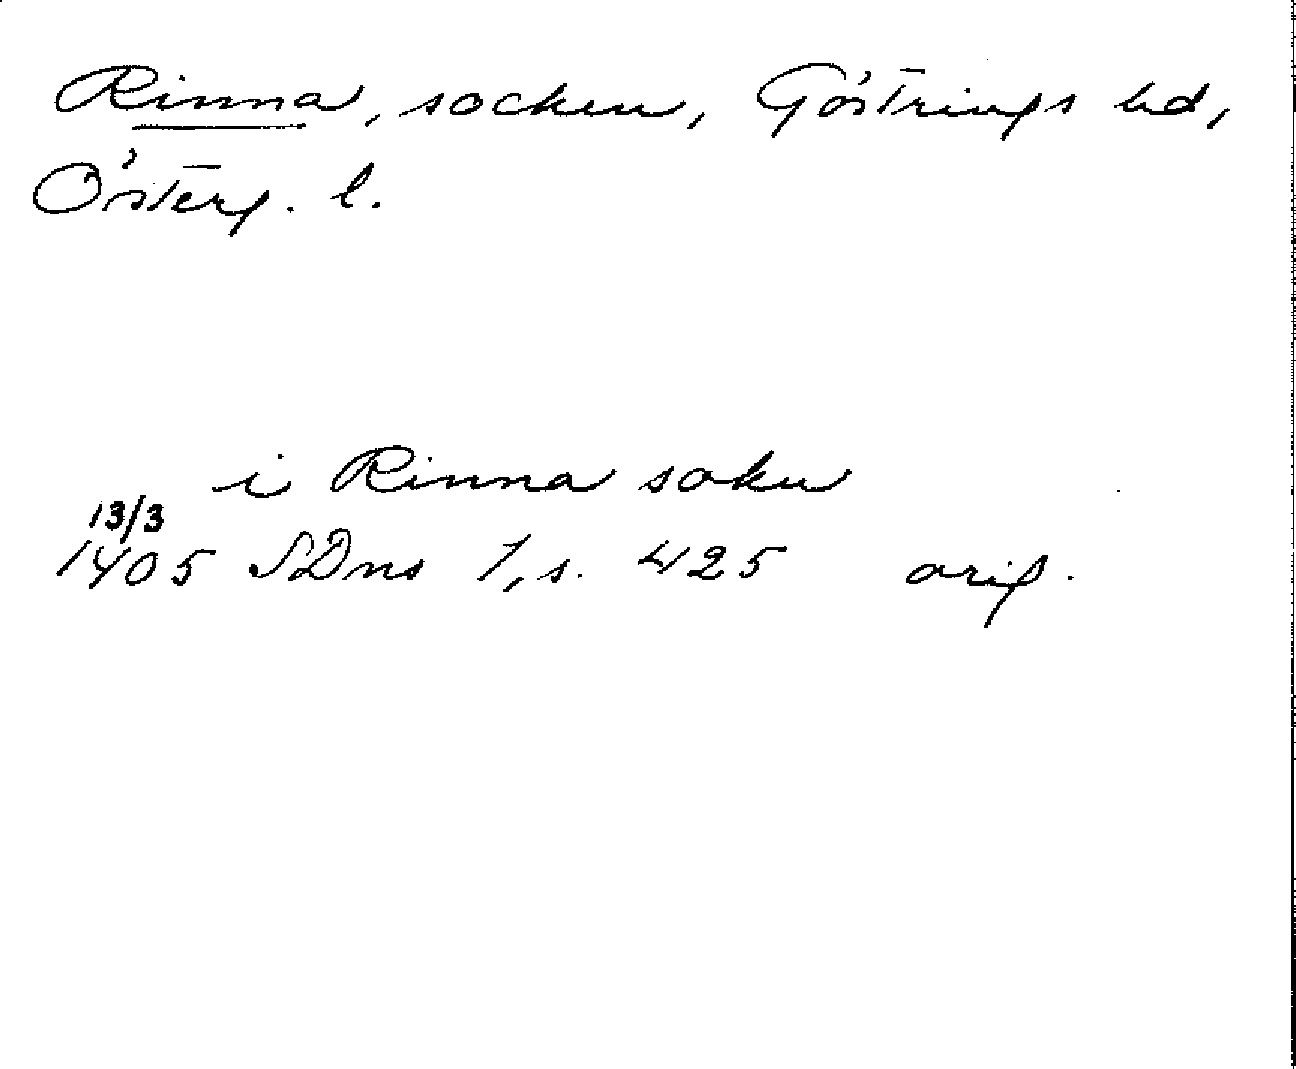 Rinna, socken, Göstrings hd,
Österg. l.
i Rinna sokn
13/3
1405 SDns 1, s. 425 orig.